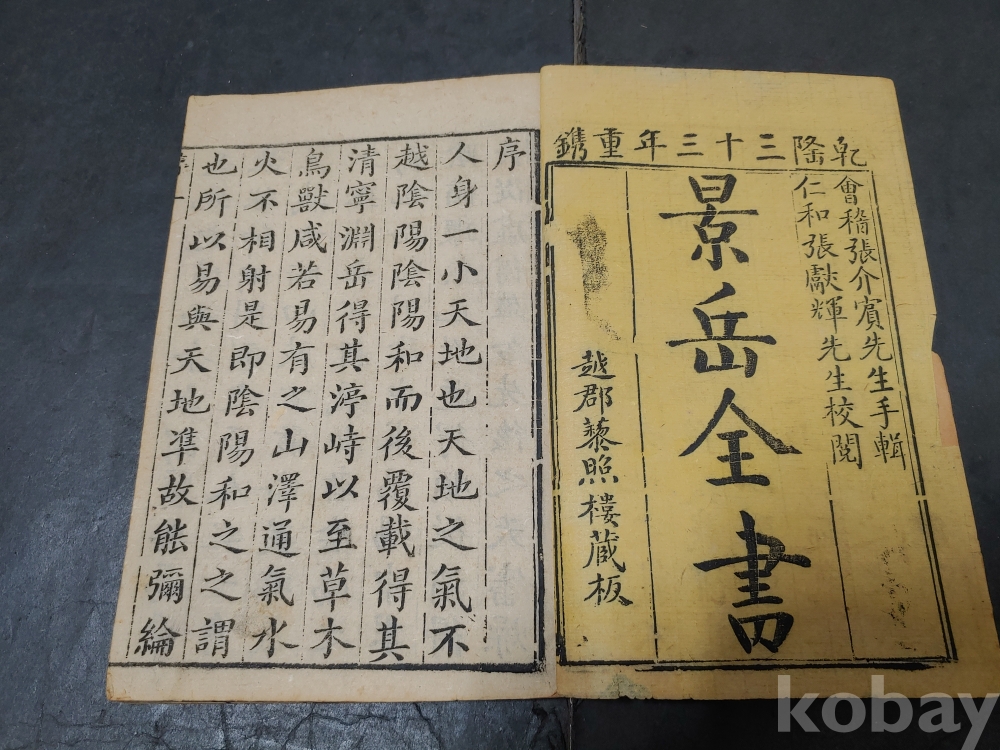 乾隆三十三年重鐫
會稽張介賓先生手輯
仁和張獻輝先生校閱
景岳全書
越郡藜照樓藏板
序
人身一小天地也天地之氣不
越陰陽陰陽和而後覆載得其
清寧淵岳得其渟峙以至草木
鳥獸咸若易有之山澤通氣水
火不相射是即陰陽和之之謂
也所以易與天地準故能彌綸
kobay